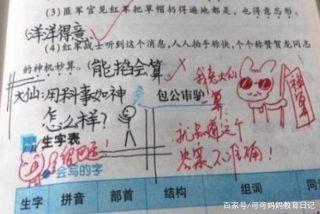 (3) 匪军官见红军把草帽扔得遍地都是,也得意忘形。
洋洋得意
(4) 红军战士听到这个消息,人人拍手称快,个个称赞贺龙同志
的神机妙算。
能掐会算
大仙:用料事如神
怎么样?
包公审驴
我是大仙
算
科算
我知道这个
答案不准确!
生字表
会写的字
生字 拼音 部首 结构 组词
百家号/可可妈妈教育日记